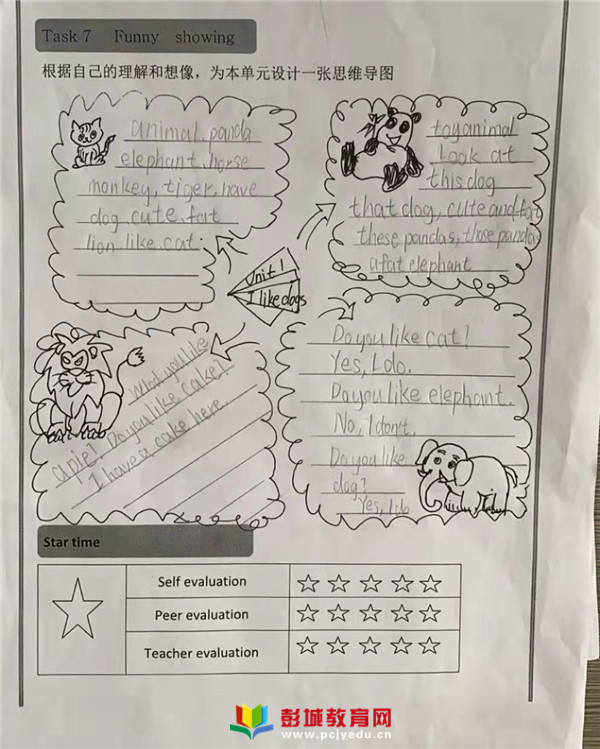 Task 7 Funny showing
根据自己的理解和想像，为本单元设计一张思维导图
animal, panda
elephant, horse
monkey, tiger, have
dog cute, fat
lion like cat.
toy animal
Look at
this dog
that dog, cute and fat
these pandas, those pandas
a fat elephant
Unit 1
I like dogs
Would you like
a pie? Do you like cake?
I have a cake here.
Do you like cat?
Yes, I do.
Do you like elephant.
No, I don't.
Do you like
dog?
Yes, I do
Star time
Self evaluation
Peer evaluation
Teacher evaluation
彭城教育网
www.pcjyedu.cn